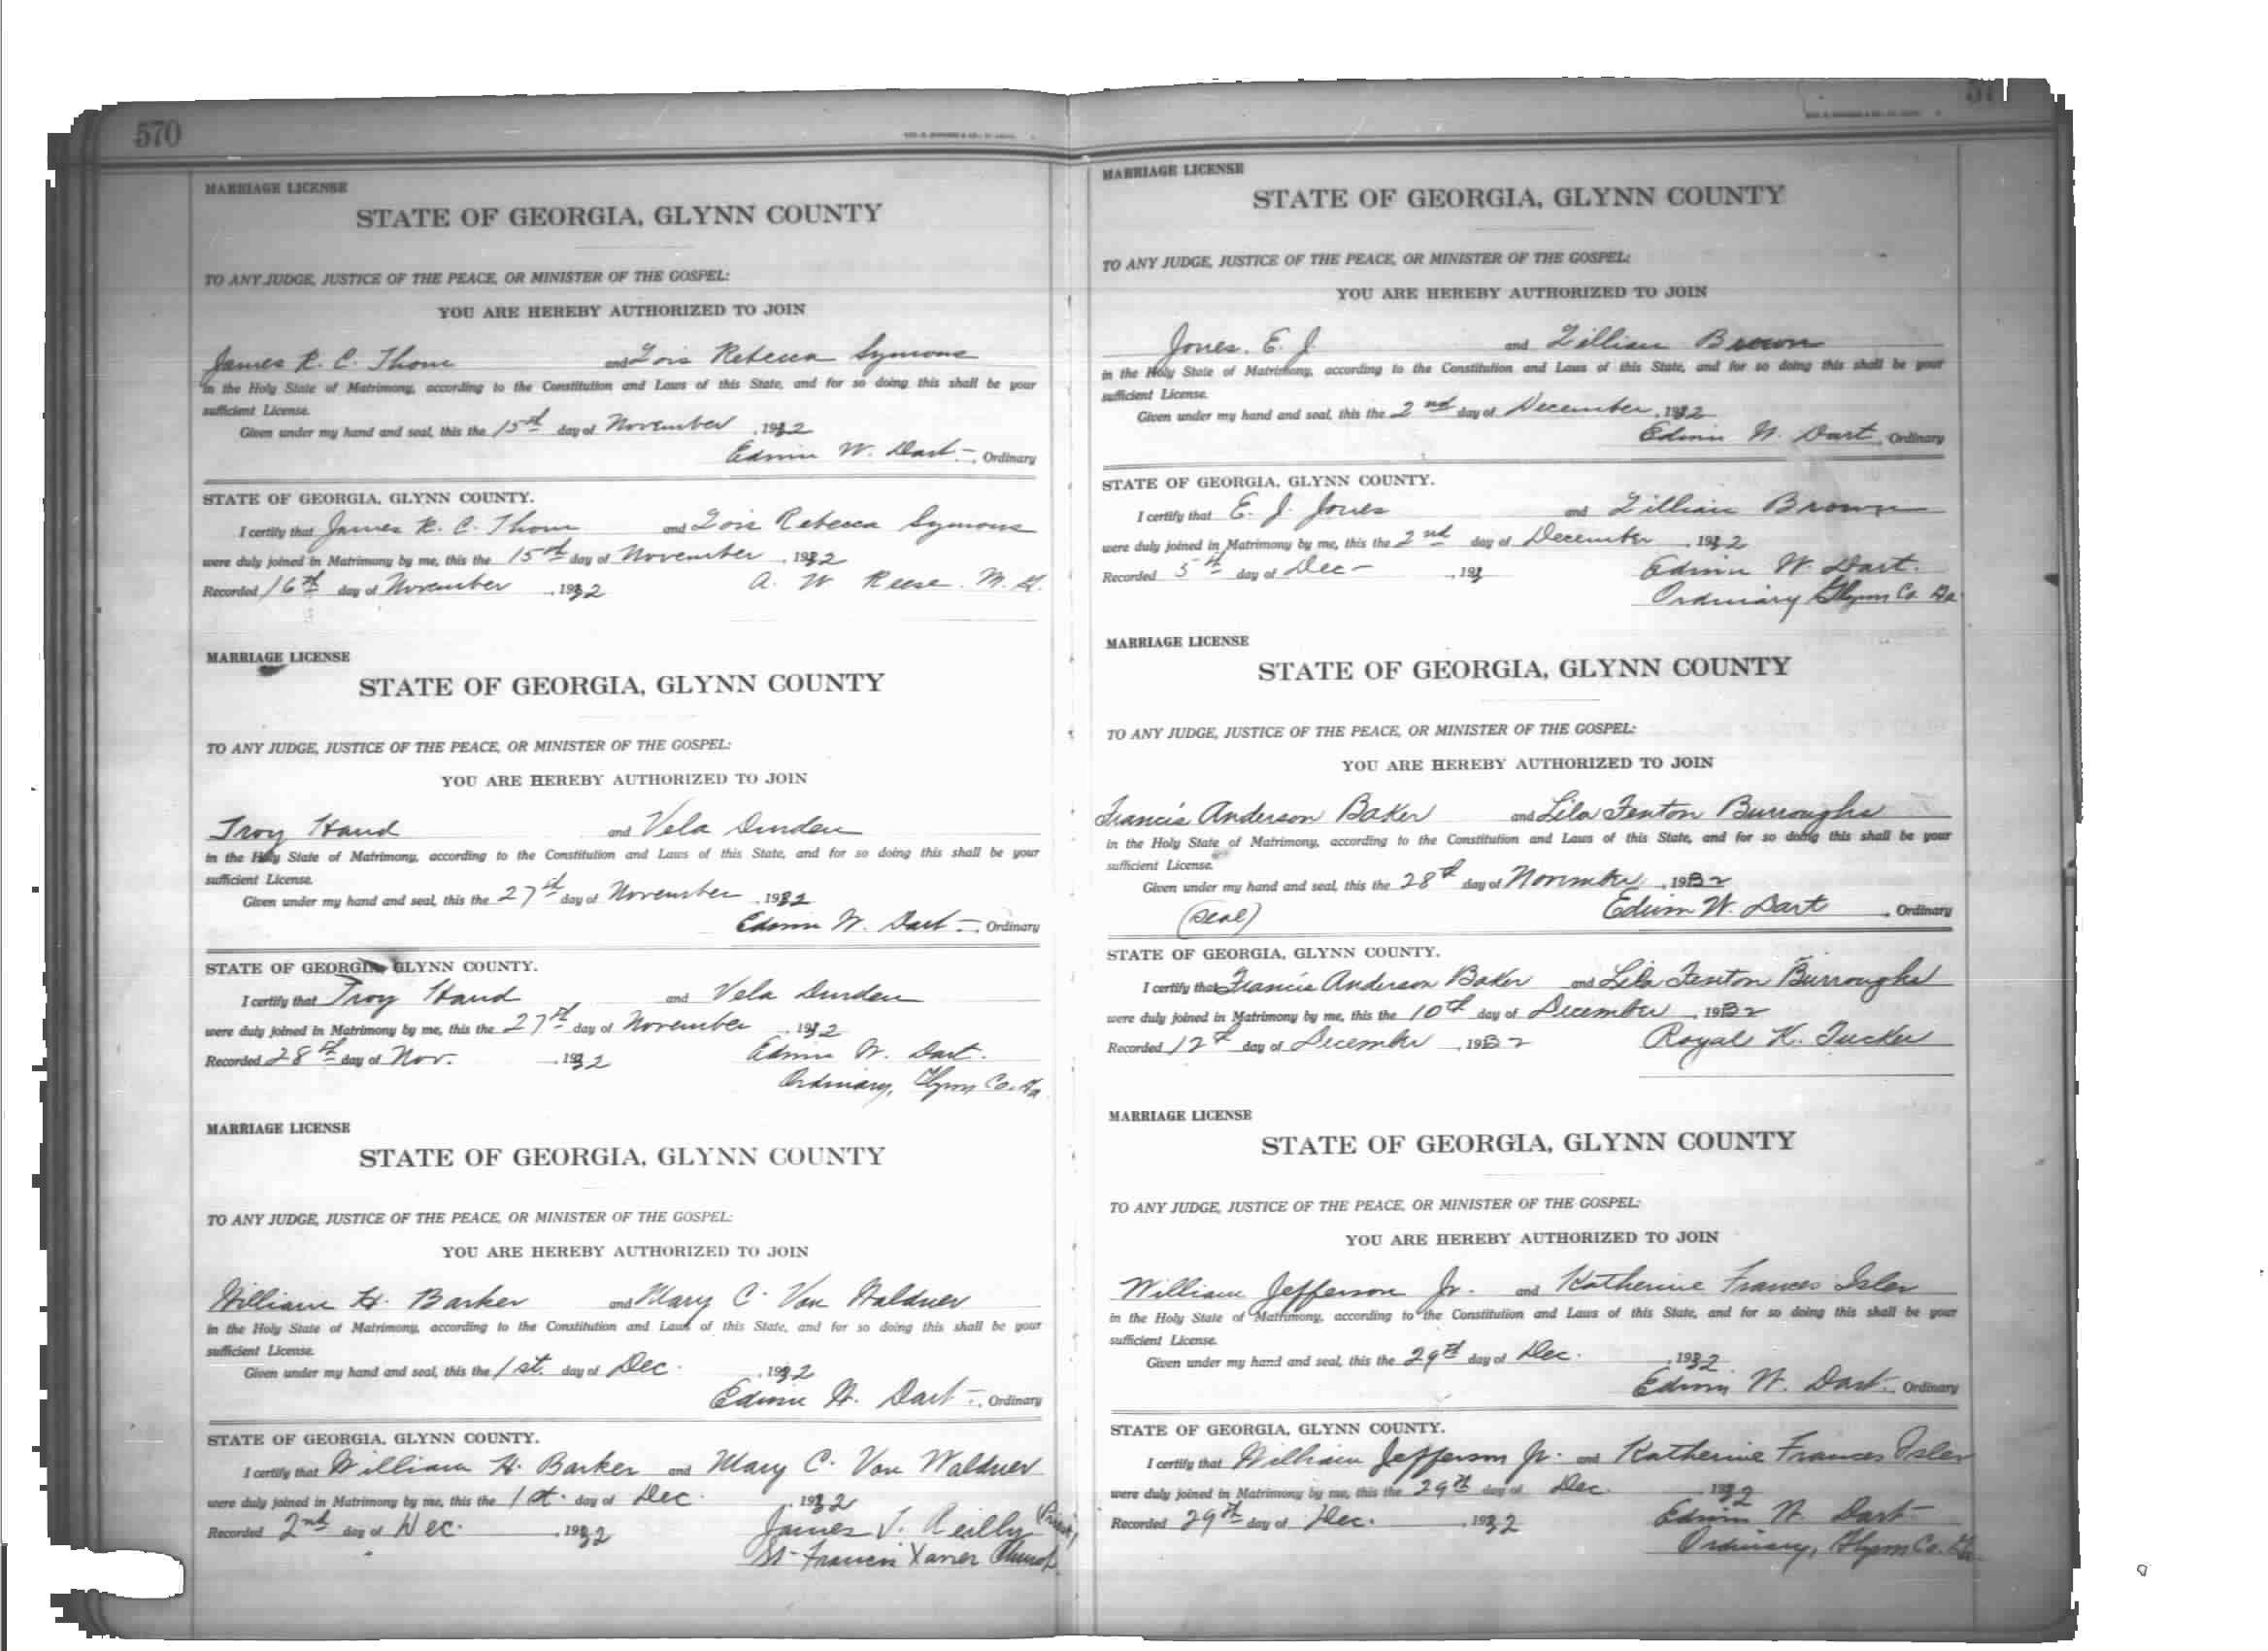 570
MARRIAGE LICENSE
STATE OF GEORGIA, GLYNN COUNTY
TO ANY JUDGE, JUSTICE OF THE PEACE, OR MINISTER OF THE GOSPEL:
YOU ARE HEREBY AUTHORIZED TO JOIN
James R. C. Thom and Lois Rebecca Symons
in the Holy State of Matrimony, according to the Constitution and Laws of this State, and for so doing this shall be your
sufficient License.
Given under my hand and seal, this the 15th day of November, 1932
Edwin W. Dart, Ordinary
STATE OF GEORGIA, GLYNN COUNTY.
I certify that James R. C. Thom and Lois Rebecca Symons
were duly joined in Matrimony by me, this the 15th day of November, 1932
Recorded 16th day of November, 1932 A. W. Reese. M. G.
MARRIAGE LICENSE
STATE OF GEORGIA, GLYNN COUNTY
TO ANY JUDGE, JUSTICE OF THE PEACE, OR MINISTER OF THE GOSPEL:
YOU ARE HEREBY AUTHORIZED TO JOIN
Troy Hand and Vela Durden
in the Holy State of Matrimony, according to the Constitution and Laws of this State, and for so doing this shall be your
sufficient License.
Given under my hand and seal, this the 27th day of November, 1932
Edwin W. Dart, Ordinary
STATE OF GEORGIA, GLYNN COUNTY.
I certify that Troy Hand and Vela Durden
were duly joined in Matrimony by me, this the 27th day of November, 1932
Recorded 28th day of Nov., 1932 Edwin W. Dart.
Ordinary, Glynn Co. Ga.
MARRIAGE LICENSE
STATE OF GEORGIA, GLYNN COUNTY
TO ANY JUDGE, JUSTICE OF THE PEACE, OR MINISTER OF THE GOSPEL:
YOU ARE HEREBY AUTHORIZED TO JOIN
William H. Barker and Mary C. Von Waldner
in the Holy State of Matrimony, according to the Constitution and Laws of this State, and for so doing this shall be your
sufficient License.
Given under my hand and seal, this the 1st. day of Dec., 1932
Edwin W. Dart, Ordinary
STATE OF GEORGIA, GLYNN COUNTY.
I certify that William H. Barker and Mary C. Von Waldner
were duly joined in Matrimony by me, this the 1st. day of Dec., 1932
Recorded 2nd day of Dec., 1932 James J. Reilly (Priest)
St Francis Xavier Church
MARRIAGE LICENSE
STATE OF GEORGIA, GLYNN COUNTY
TO ANY JUDGE, JUSTICE OF THE PEACE, OR MINISTER OF THE GOSPEL:
YOU ARE HEREBY AUTHORIZED TO JOIN
Jones. E. J and Lillian Brown
in the Holy State of Matrimony, according to the Constitution and Laws of this State, and for so doing this shall be your
sufficient License.
Given under my hand and seal, this the 2nd day of December, 1932
Edwin W. Dart, Ordinary
STATE OF GEORGIA, GLYNN COUNTY.
I certify that E. J. Jones and Lillian Brown
were duly joined in Matrimony by me, this the 2nd day of December, 1932
Recorded 5th day of Dec, 193 Edwin W. Dart.
Ordinary Glynn Co. Ga.
MARRIAGE LICENSE
STATE OF GEORGIA, GLYNN COUNTY
TO ANY JUDGE, JUSTICE OF THE PEACE, OR MINISTER OF THE GOSPEL:
YOU ARE HEREBY AUTHORIZED TO JOIN
Francis Anderson Baker and Lila Fenton Burroughs
in the Holy State of Matrimony, according to the Constitution and Laws of this State, and for so doing this shall be your
sufficient License.
Given under my hand and seal, this the 28th day of November, 1932
(Seal) Edwin W. Dart, Ordinary
STATE OF GEORGIA, GLYNN COUNTY.
I certify that Francis Anderson Baker and Lila Fenton Burroughs
were duly joined in Matrimony by me, this the 10th day of December, 1932
Recorded 12th day of December, 1932 Royal K. Tucker
MARRIAGE LICENSE
STATE OF GEORGIA, GLYNN COUNTY
TO ANY JUDGE, JUSTICE OF THE PEACE, OR MINISTER OF THE GOSPEL:
YOU ARE HEREBY AUTHORIZED TO JOIN
William Jefferson Jr. and Katherine Frances Isler
in the Holy State of Matrimony, according to the Constitution and Laws of this State, and for so doing this shall be your
sufficient License.
Given under my hand and seal, this the 29th day of Dec., 1932
Edwin W. Dart, Ordinary
STATE OF GEORGIA, GLYNN COUNTY.
I certify that William Jefferson Jr. and Katherine Frances Isler
were duly joined in Matrimony by me, this the 29th day of Dec., 1932
Recorded 29th day of Dec., 1932 Edwin W. Dart
Ordinary, Glynn Co. Ga.